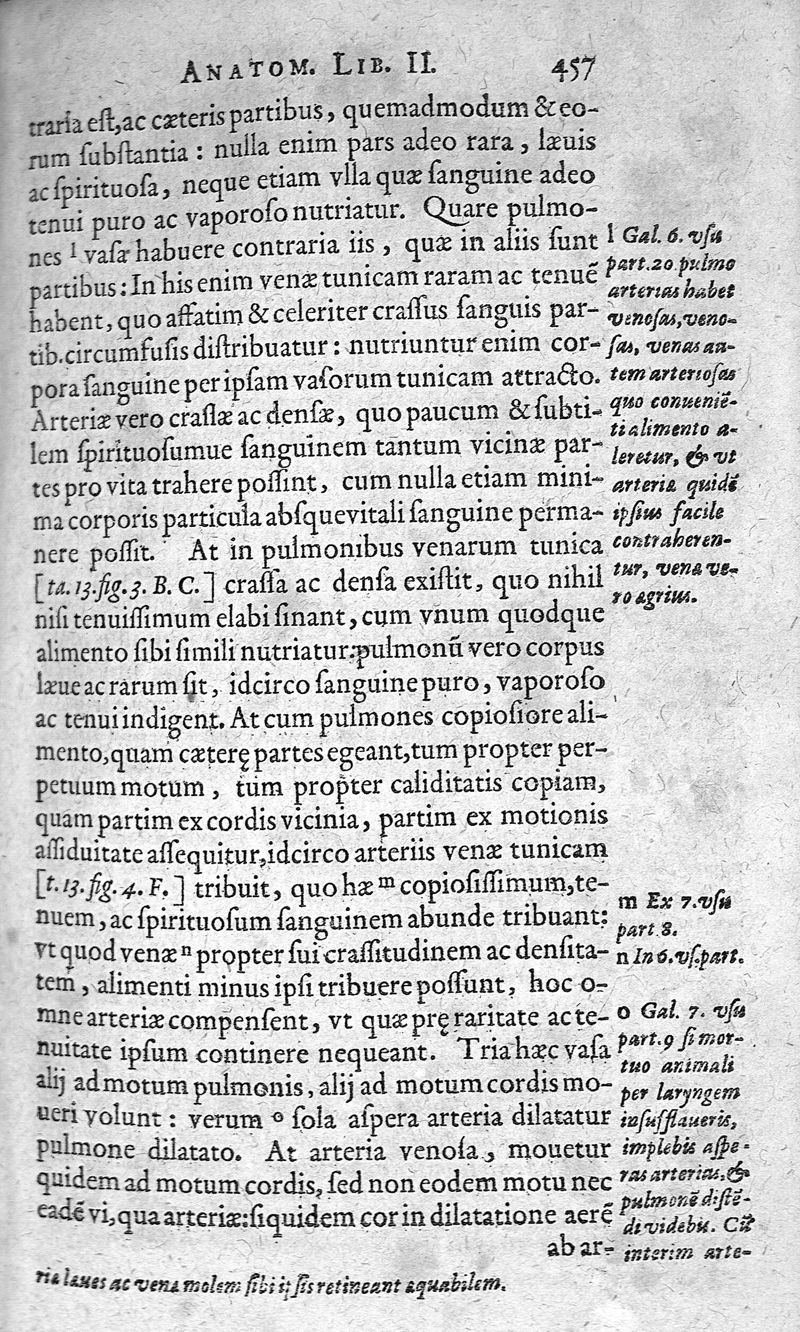 ANATOM. LIB. II. 457
traria eſt, ac cæteris partibus, quemadmodum & eo-
rum ſubſtantia : nulla enim pars adeo rara, læuis
ac ſpirituoſa, neque etiam vlla quæ ſanguine adeo
tenui puro ac vaporoſo nutriatur. Quare pulmo-
nes l vaſa habuere contraria iis, quæ in aliis ſunt
partibus: In his enim venæ tunicam raram ac tenuē
habent, quo affatim & celeriter craſſus ſanguis par-
tib. circumfuſis diſtribuatur: nutriuntur enim cor-
pora ſanguine per ipſam vaſorum tunicam attracto.
Arteriæ vero craſſæ ac denſæ, quo paucum & ſubti-
lem ſpirituoſumue ſanguinem tantum vicinæ par-
tes pro vita trahere poſſint, cum nulla etiam mini-
ma corporis particula abſque vitali ſanguine perma-
nere poſſit. At in pulmonibus venarum tunica
[ta. 13. fig. 3. B. C.] craſſa ac denſa exiſtit, quo nihil
niſi tenuiſſimum elabi ſinant, cum vnum quodque
alimento ſibi ſimili nutriatur: pulmonū vero corpus
læue ac rarum ſit, idcirco ſanguine puro, vaporoſo
ac tenui indigent. At cum pulmones copioſiore ali-
mento, quam cæterę partes egeant, tum propter per-
petuum motum, tum propter caliditatis copiam,
quam partim ex cordis vicinia, partim ex motionis
aſſiduitate aſſequitur, idcirco arteriis venæ tunicam
[t. 13. fig. 4. F.] tribuit, quo hæ m copioſiſſimum, te-
nuem, ac ſpirituoſum ſanguinem abunde tribuant:
vt quod venæ n propter ſui craſſitudinem ac denſita-
tem, alimenti minus ipſi tribuere poſſunt, hoc o-
mne arteriæ compenſent, vt quæ prę raritate ac te-
nuitate ipſum continere nequeant. Tria hæc vaſa
alij ad motum pulmonis, alij ad motum cordis mo-
ueri volunt: verum o ſola aſpera arteria dilatatur
pulmone dilatato. At arteria venoſa, mouetur
quidem ad motum cordis, ſed non eodem motu nec
eadē vi, qua arteriæ: ſiquidem cor in dilatatione aerē
ab ar-
l Gal. 6. vſu
part. 20. pulmo
arterias habet
venoſas, veno-
ſas, venas au-
tem arterioſas
quo conueniē-
ti alimento a-
leretur, & vt
arteria quidē
ipſius facile
contraheren-
tur, vena ve-
ro ægrius.
m Ex 7. vſu
part 8.
n In 6. vſ. part.
o Gal. 7. vſu
part. 9 ſi mor-
tuo animali
per laryngem
inſuffflaueris,
implebis aſpe-
ras arterias, &
pulmonē diſtē-
di videbis. Cū
interim arte-
riæ læues ac venæ molem ſibi ipſis retineant æquabilem.